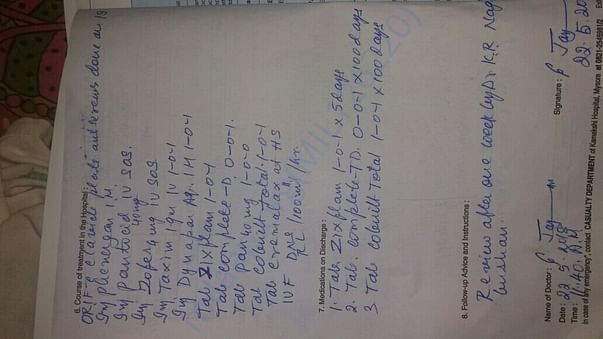 6. Course of treatment in the Hospital :
ORIF c clavicle plate and screws done on 18
Inj Phenergan IM
Inj Pantocid IV sos.
Inj Zofer 4mg IV sos
Inj Taxim 1gm IV 1-0-1
Inj Dynapar AQ. IM 1-0-1
Tab Zixflam 1-0-1
Tab complete-D 0-0-1.
Tab Pan 40mg 1-0-0
Tab cobuilt Total 1-0-1
Tab cremalax at HS
IVF DNS RL 100ml/hr
7. Medications on Discharge :
1. Tab Zixflam 1-0-1 x 5 days
2. Tab. complete-TD. 0-0-1 x 100 days
3. Tab cobuilt Total 1-0-1 x 100 days
8. Follow-up Advice and Instructions :
Review after one week by Dr. K.R. Nag
bushan.
Name of Doctor :
Signature :
Date : 22.5.
22.5.20
Time : 11.40.
In case of any emergency, contact CASUALTY DEPARTMENT of Kamakshi Hospital, Mysore at 0821-2545981/2